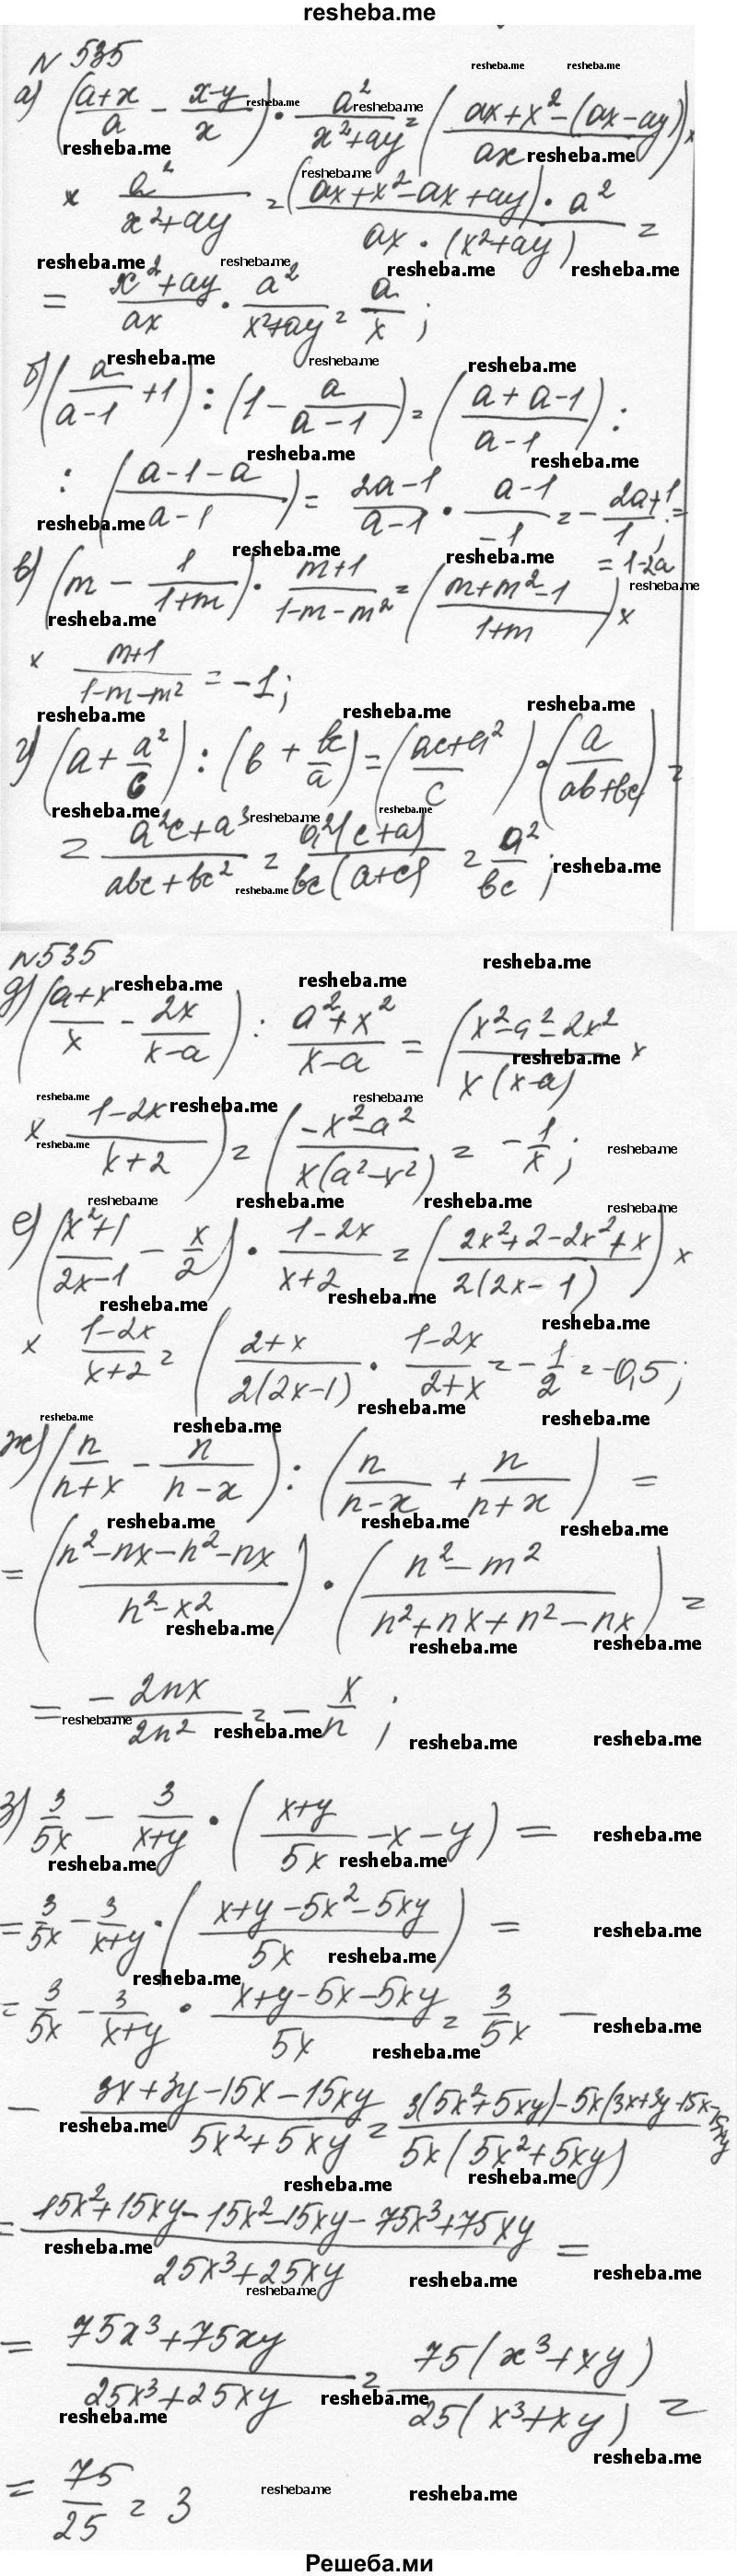 resheba.me
N 535
а) ((a+x)/a - (x-y)/x) · a²/(x²+ay) = ((ax+x²-(ax-ay))/ax) ×
× a²/(x²+ay) = ((ax+x²-ax+ay) · a²)/(ax · (x²+ay)) =
= (x²+ay)/ax · a²/(x²+ay) = a/x ;
б) (a/(a-1) +1) : (1 - a/(a-1)) = ((a+a-1)/(a-1)) :
: ((a-1-a)/(a-1)) = (2a-1)/(a-1) · (a-1)/-1 = - (2a+1)/1 ; =
= 1-2a
в) (m - 1/(1+m)) · (m+1)/(1-m-m²) = ((m+m²-1)/(1+m)) ×
× (m+1)/(1-m-m²) = -1;
г) (a + a²/c) : (b + bc/a) = ((ac+a²)/c) · (a/(ab+bc)) =
= (a²c+a³)/(abc+bc²) = a²(c+a)/bc(a+c) = a²/bc ;
N535
д) ((a+x)/x - 2x/(x-a)) : (a²+x²)/(x-a) = ((x²-a²-2x²)/x(x-a) ×
× (1-2x)/(x+2)) = ((-x²-a²)/x(a²-x²) = - 1/x ;
е) ((x²+1)/(2x-1) - x/2) · (1-2x)/(x+2) = ((2x²+2-2x²+x)/2(2x-1)) ×
× (1-2x)/(x+2) = ((2+x)/2(2x-1) · (1-2x)/(2+x) = - 1/2 = -0,5 ;
ж) (n/(n+x) - n/(n-x)) : (n/(n-x) + n/(n+x)) =
= ((n²-nx-n²-nx)/(n²-x²)) · ((n²-m²)/(n²+nx+n²-nx)) =
= -2nx/2n² = - x/n ;
з) 3/5x - 3/(x+y) · ((x+y)/5x -x-y) =
= 3/5x - 3/(x+y) · ((x+y-5x²-5xy)/5x) =
= 3/5x - 3/(x+y) · (x+y-5x-5xy)/5x = 3/5x -
- (3x+3y-15x-15xy)/(5x²+5xy) = (3(5x²+5xy)-5x(3x+3y-15x-15xy)/5x(5x²+5xy)
= (15x²+15xy-15x²-15xy-75x³+75xy)/(25x³+25xy) =
= (75x³+75xy)/(25x³+25xy) = 75(x³+xy)/25(x³+xy) =
= 75/25 = 3
Решеба.ми